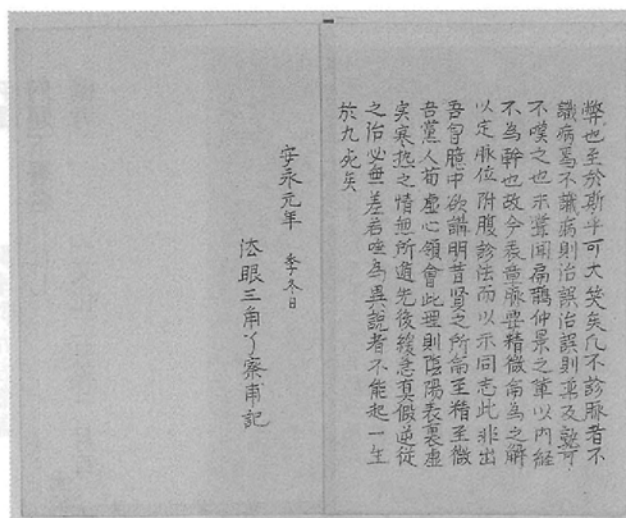 弊也至於斯乎可大笑矣凡不診脉者不
識病焉不識病則治誤治誤則棄及孰可
不嘆之也示甞聞扁鵲仲景之軰以内経
不為幹也故今表章脉要精微侖為之解
以定脉位附腹診法而以示同志此非出
吾胷臆中欲講明昔賢之所侖至精至微
吾黨人荀虚心領會此理則陰陽表裏虚
実寒热之情無所遁先後緩急真假逆従
之治必無差若唑為異説者不能起一生
於九死矣
安永元年 季冬日
法眼三角了察甫記